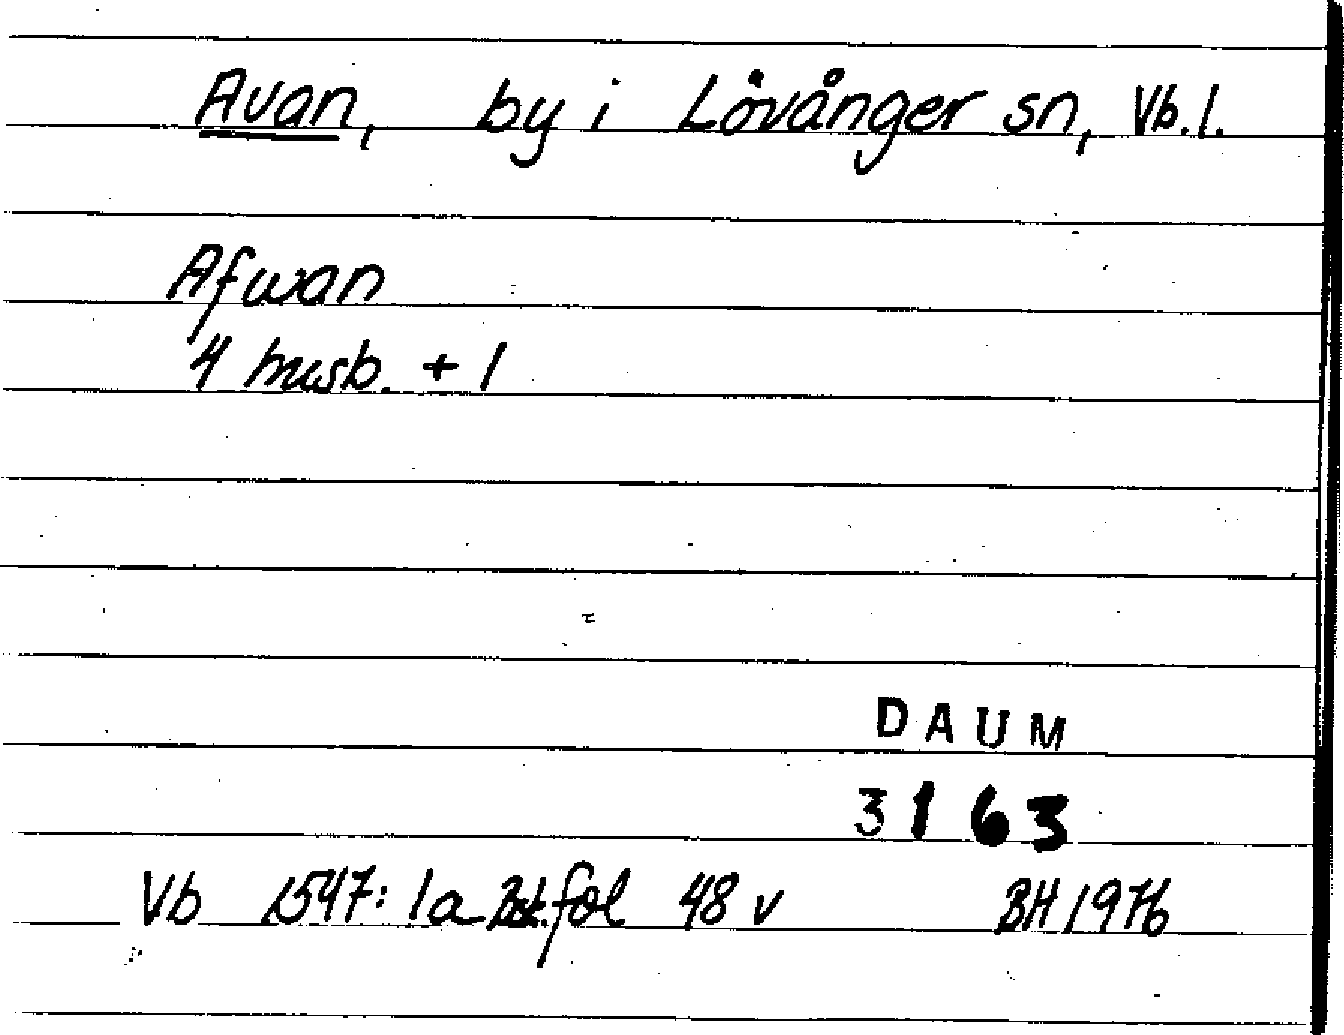 Avan, by i Lövånger sn, Vb.l.
Afwan
4 husb. + 1
DAUM
3163
Vb 1547: 1a fol 48 v BH 1976